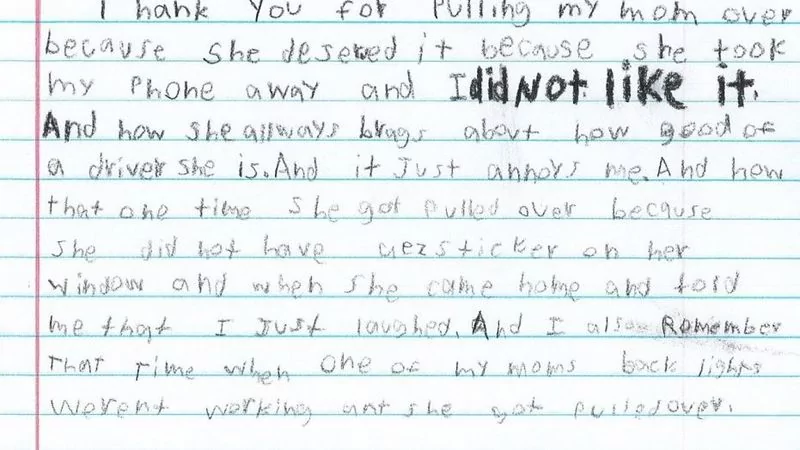 Thank You for Pulling my mom over
because she deserved it because she took
my Phone away and I did Not like it.
And how she allways brags about how good of
a driver she is. And it Just annoys me. And how
that one time she got Pulled over because
she did not have sticker on her
window and when she came home and told
me that I Just laughed. And I also Remember
That Time when one of my moms back lights
werent working she got Pulled over.